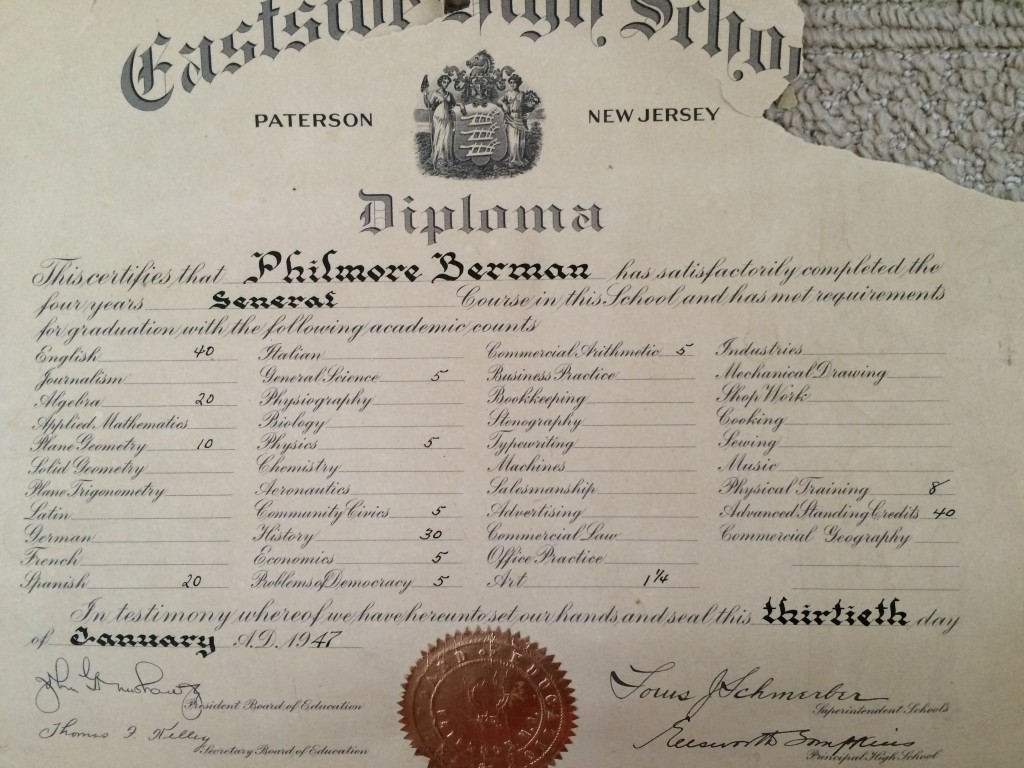 Eastside High School
PATERSON NEW JERSEY
Diploma
This certifies that Philmore Berman has satisfactorily completed the
four years General Course in this School and has met requirements
for graduation with the following academic counts
English 40 Italian Commercial Arithmetic 5 Industries
Journalism General Science 5 Business Practice Mechanical Drawing
Algebra 20 Physiography Bookkeeping Shop Work
Applied Mathematics Biology Stenography Cooking
Plane Geometry 10 Physics 5 Typewriting Sewing
Solid Geometry Chemistry Machines Music
Plane Trigonometry Aeronautics Salesmanship Physical Training 8
Latin Community Civics 5 Advertising Advanced Standing Credits 40
German History 30 Commercial Law Commercial Geography
French Economics 5 Office Practice
Spanish 20 Problems of Democracy 5 Art 1 1/4
In testimony whereof we have hereunto set our hands and seal this thirtieth day
of January A.D. 1947
John
President Board of Education
Thomas F. Kelley
Secretary Board of Education
Louis J Schmerber
Superintendent Schools
Ellsworth Tompkins
Principal High School